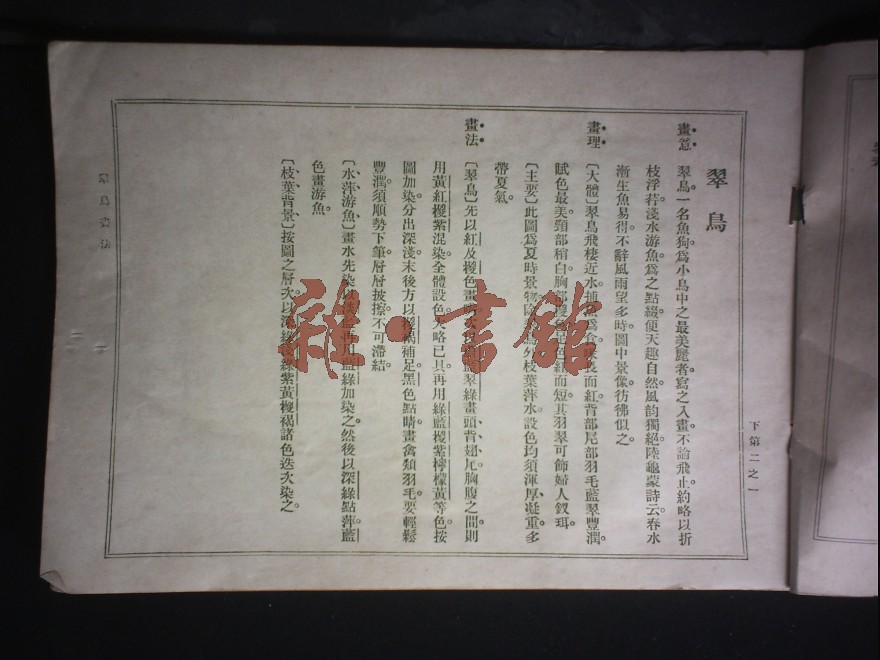 下第二之一
翠鳥
畫意 翠鳥一名魚狗爲小鳥中之最美麗者寫之入畫不論飛止約略以折
枝浮荇淺水游魚爲之點綴便天趣自然風韵獨絕陸龜蒙詩云春水
漸生魚易得不辭風雨望多時圖中景像彷彿似之。
畫理 〔大體〕翠鳥飛棲近水捕魚爲食長而紅背部尾部羽毛藍翠豐潤。
賦色最美頸部稍白胸部足色紅而短其羽翠可飾婦人釵珥。
〔主要〕此圖爲夏時景物除鳥外枝葉萍水設色均須渾厚凝重多
帶夏氣。
畫法 〔翠鳥〕先以紅及橙色畫藍翠綠畫頭背翅尾胸腹之間則
用黃紅橙紫混染。全體設色大略已具再用綠藍橙紫檸檬黃等色按
圖加染分出深淺。末後方以橙褐補足黑色點睛畫禽類羽毛要輕鬆
豐潤須順勢下筆層層披擦不可滯結。
〔水、萍、游魚〕畫水先染以淺藍再用藍綠加染之。然後以深綠點萍藍
色畫游魚。
〔枝、葉、背景〕按圖之層次以深綠淺綠紫黃橙褐諸色迭次染之。
翠鳥畫法
雜·書館